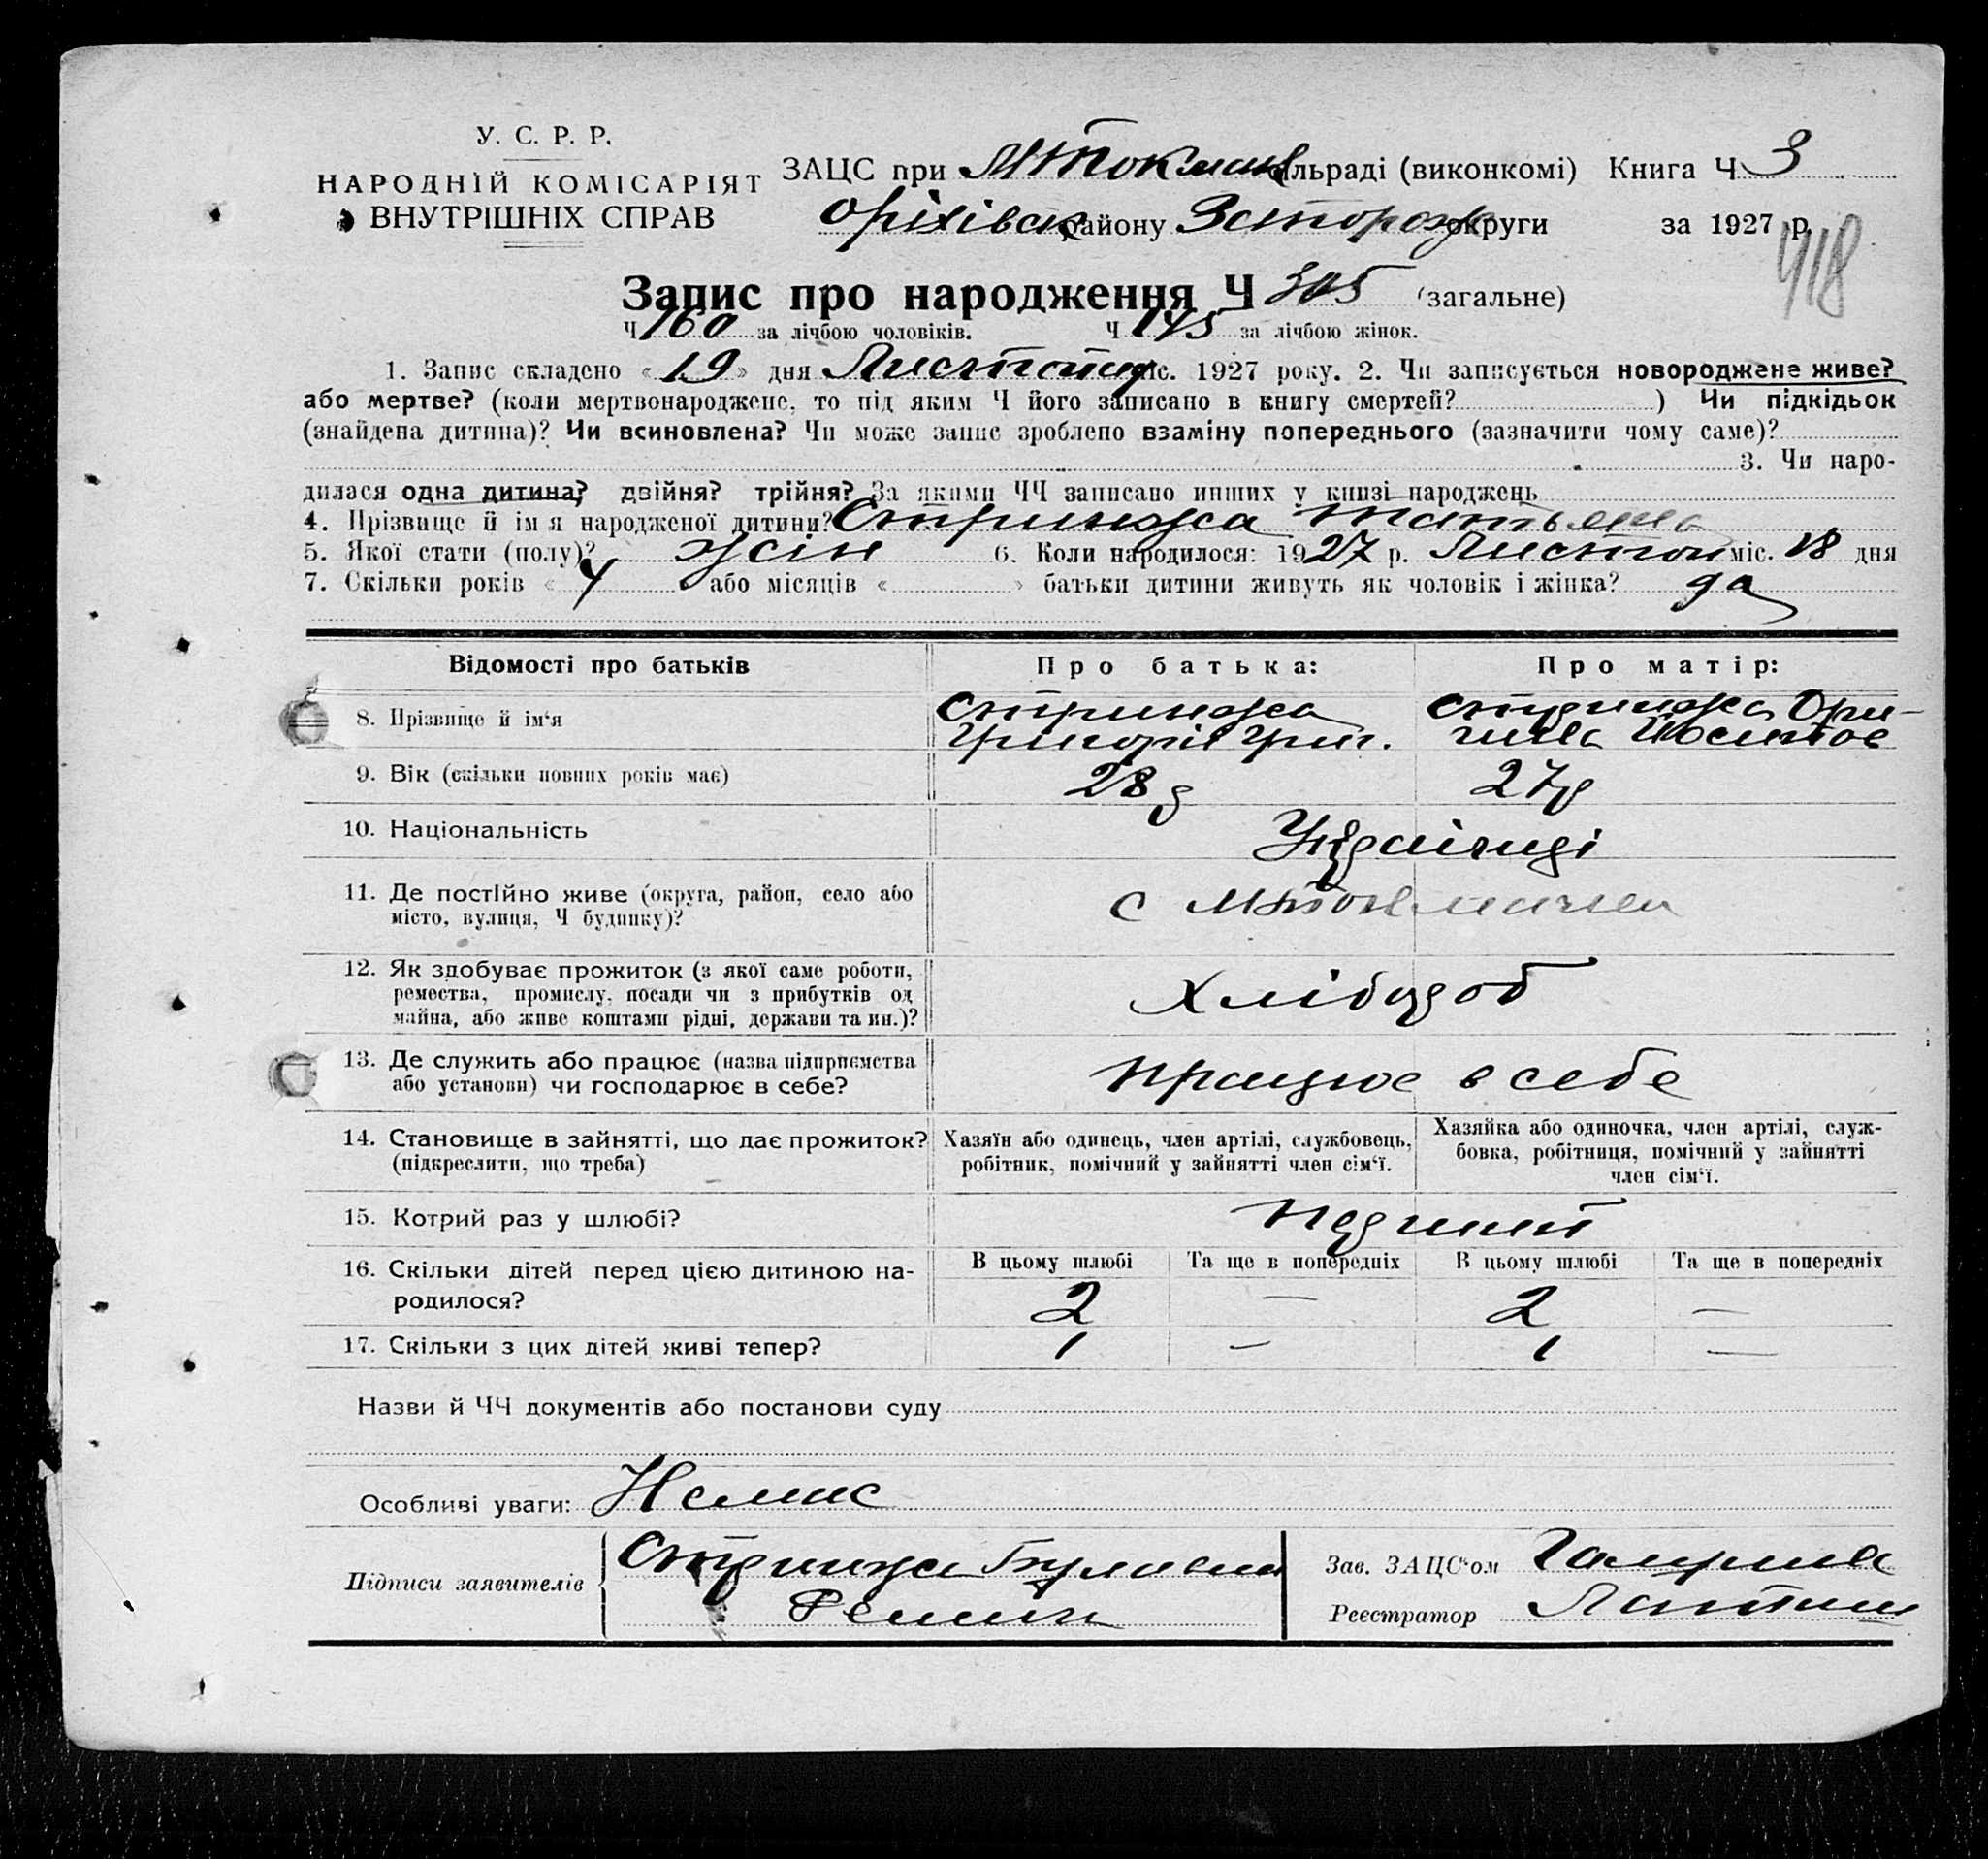 У. С. Р. Р.
НАРОДНІЙ КОМІСАРІЯТ
ВНУТРІШНІХ СПРАВ
ЗАЦС при М Токмач сільраді (виконкомі) Книга Ч 3
Оріхівск району Запорозь округи за 1927 р.
418
Запис про народження Ч 305 (загальне)
Ч 160 за лічбою чоловіків. Ч 145 за лічбою жінок.
1. Запис складено «19» дня Листопад міс. 1927 року. 2. Чи записується новороджене живе?
або мертве? (коли мертвонароджене, то під яким Ч його записано в книгу смертей? ) Чи підкідьок
(знайдена дитина)? Чи всиновлена? Чи може запис зроблено взаміну попереднього (зазначити чому саме)?
3. Чи наро-
дилася одна дитина? двійня? трійня? За якими ЧЧ записано инших у книзі народжень
4. Прізвище й ім я народженої дитини? Стринжа Татьяна
5. Якої стати (полу)? жін 6. Коли народилося: 1927 р. Листоп міс. 18 дня
7. Скільки років « 4 або місяців « » батьки дитини живуть як чоловік і жінка? да
Відомості про батьків Про батька: Про матір:
8. Прізвище й ім‘я Стринжа Григорій Григ. Стринжа Ори-
гина
9. Вік (скільки повних років має) 28 27
10. Національність Українці
11. Де постійно живе (округа, район, село або
місто, вулиця, Ч будинку)? с М Токмачка
12. Як здобуває прожиток (з якої саме роботи,
ремества, промислу, посади чи з прибутків од
майна, або живе коштами рідні, держави та ин.)? Хлібороб
13. Де служить або працює (назва підприємства
або установи) чи господарює в себе? працює в себе
14. Становище в зайнятті, що дає прожиток?
(підкреслити, що треба)
Хазяїн або одинець, член артілі, службовець,
робітник, помічний у зайнятті член сім‘ї.
Хазяйка або одиночка, член артілі, служ-
бовка, робітниця, помічний у зайнятті
член сім‘ї.
15. Котрий раз у шлюбі? Перший
16. Скільки дітей перед цією дитиною на-
родилося?
В цьому шлюбі Та ще в попередніх В цьому шлюбі Та ще в попередніх
2 — 2 —
17. Скільки з цих дітей живі тепер? 1 — 1 —
Назви й ЧЧ документів або постанови суду
Особливі уваги: Немає
Підписи заявителів Стринжа
Зав. ЗАЦС‘ом
Реєстратор